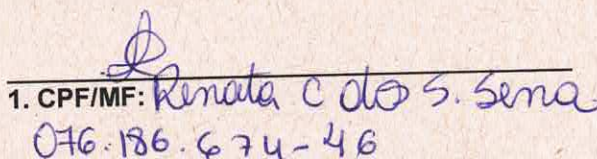 1. CPF/MF: Renata C dos S. Sena
076.186.674-46